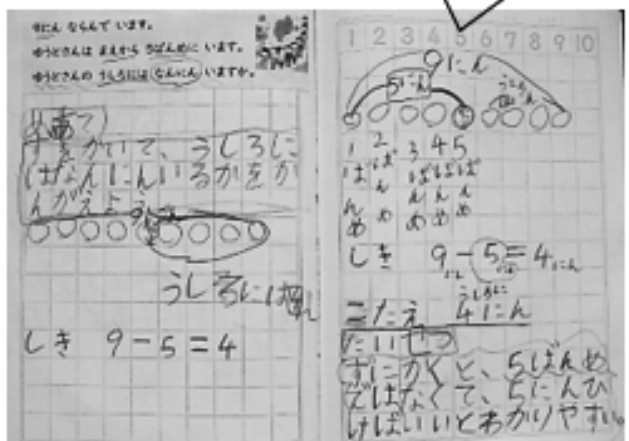 9にん ならんで います。
ゆうとさんは まえから 5ばんめに います。
ゆうとさんの うしろには なんにん いますか。
ずをかいて、うしろに
はなんにんいるかをか
んがえよう
うしろには
しき 9-5=4
1 2 3 4 5 6 7 8 9 10
9にん
5にん
1 2 3 4 5
ばんめ ばんめ ばんめ ばんめ ばんめ
しき 9-5=4にん
こたえ うしろに 4にん
たいせつ
ずにかくと、5ばんめ
ではなくて、5にんひ
けばいいとわかりやすい。